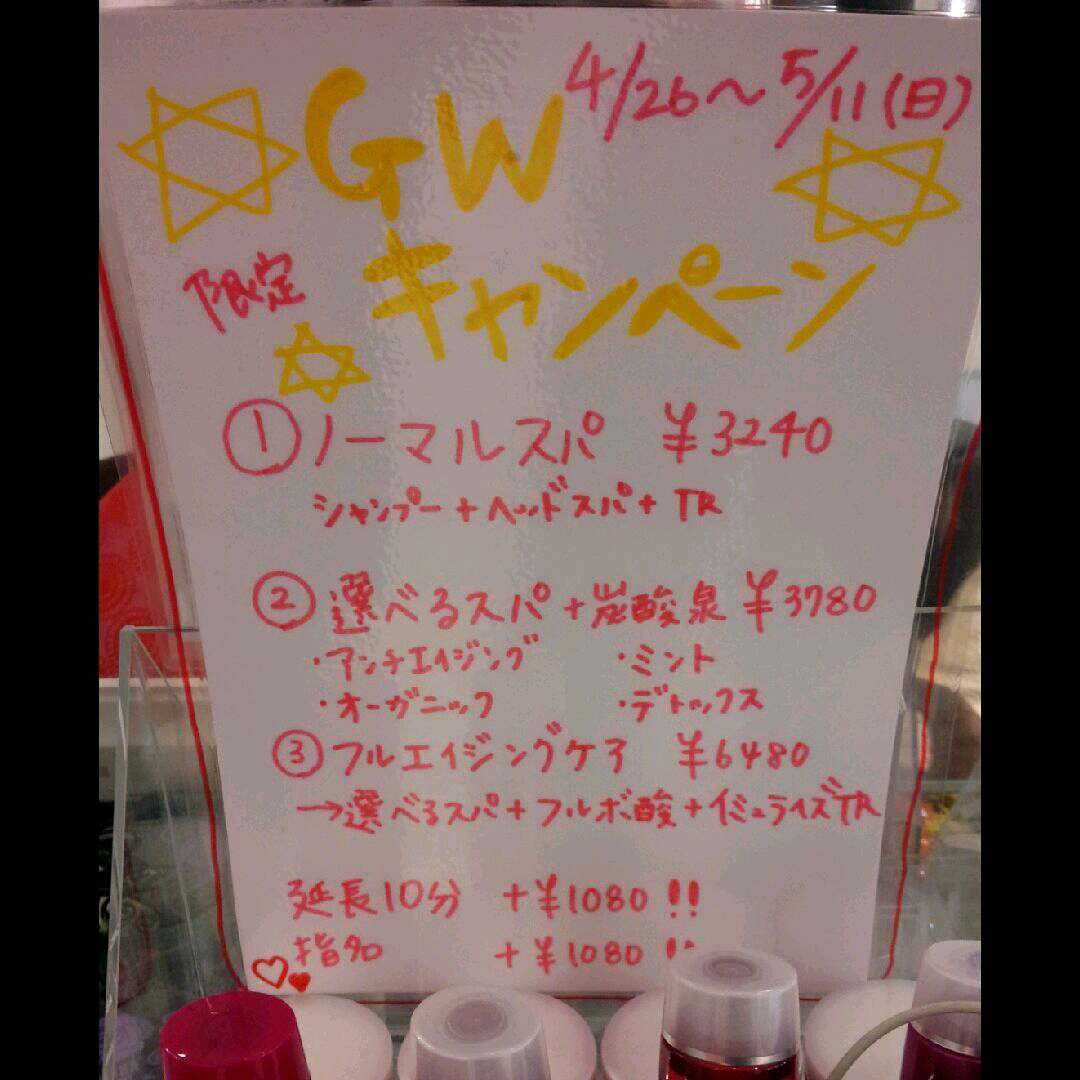 4/26～5/11(日)
GW
限定
キャンペーン
① ノーマルスパ ¥3240
シャンプー+ヘッドスパ+TR
② 選べるスパ+炭酸泉 ¥3780
・アンチエイジング ・ミント
・オーガニック ・デトックス
③ フルエイジングケア ¥6480
→選べるスパ+フルボ酸+イミュライズTR
延長10分 +¥1080 !!
指名 +¥1080 !!